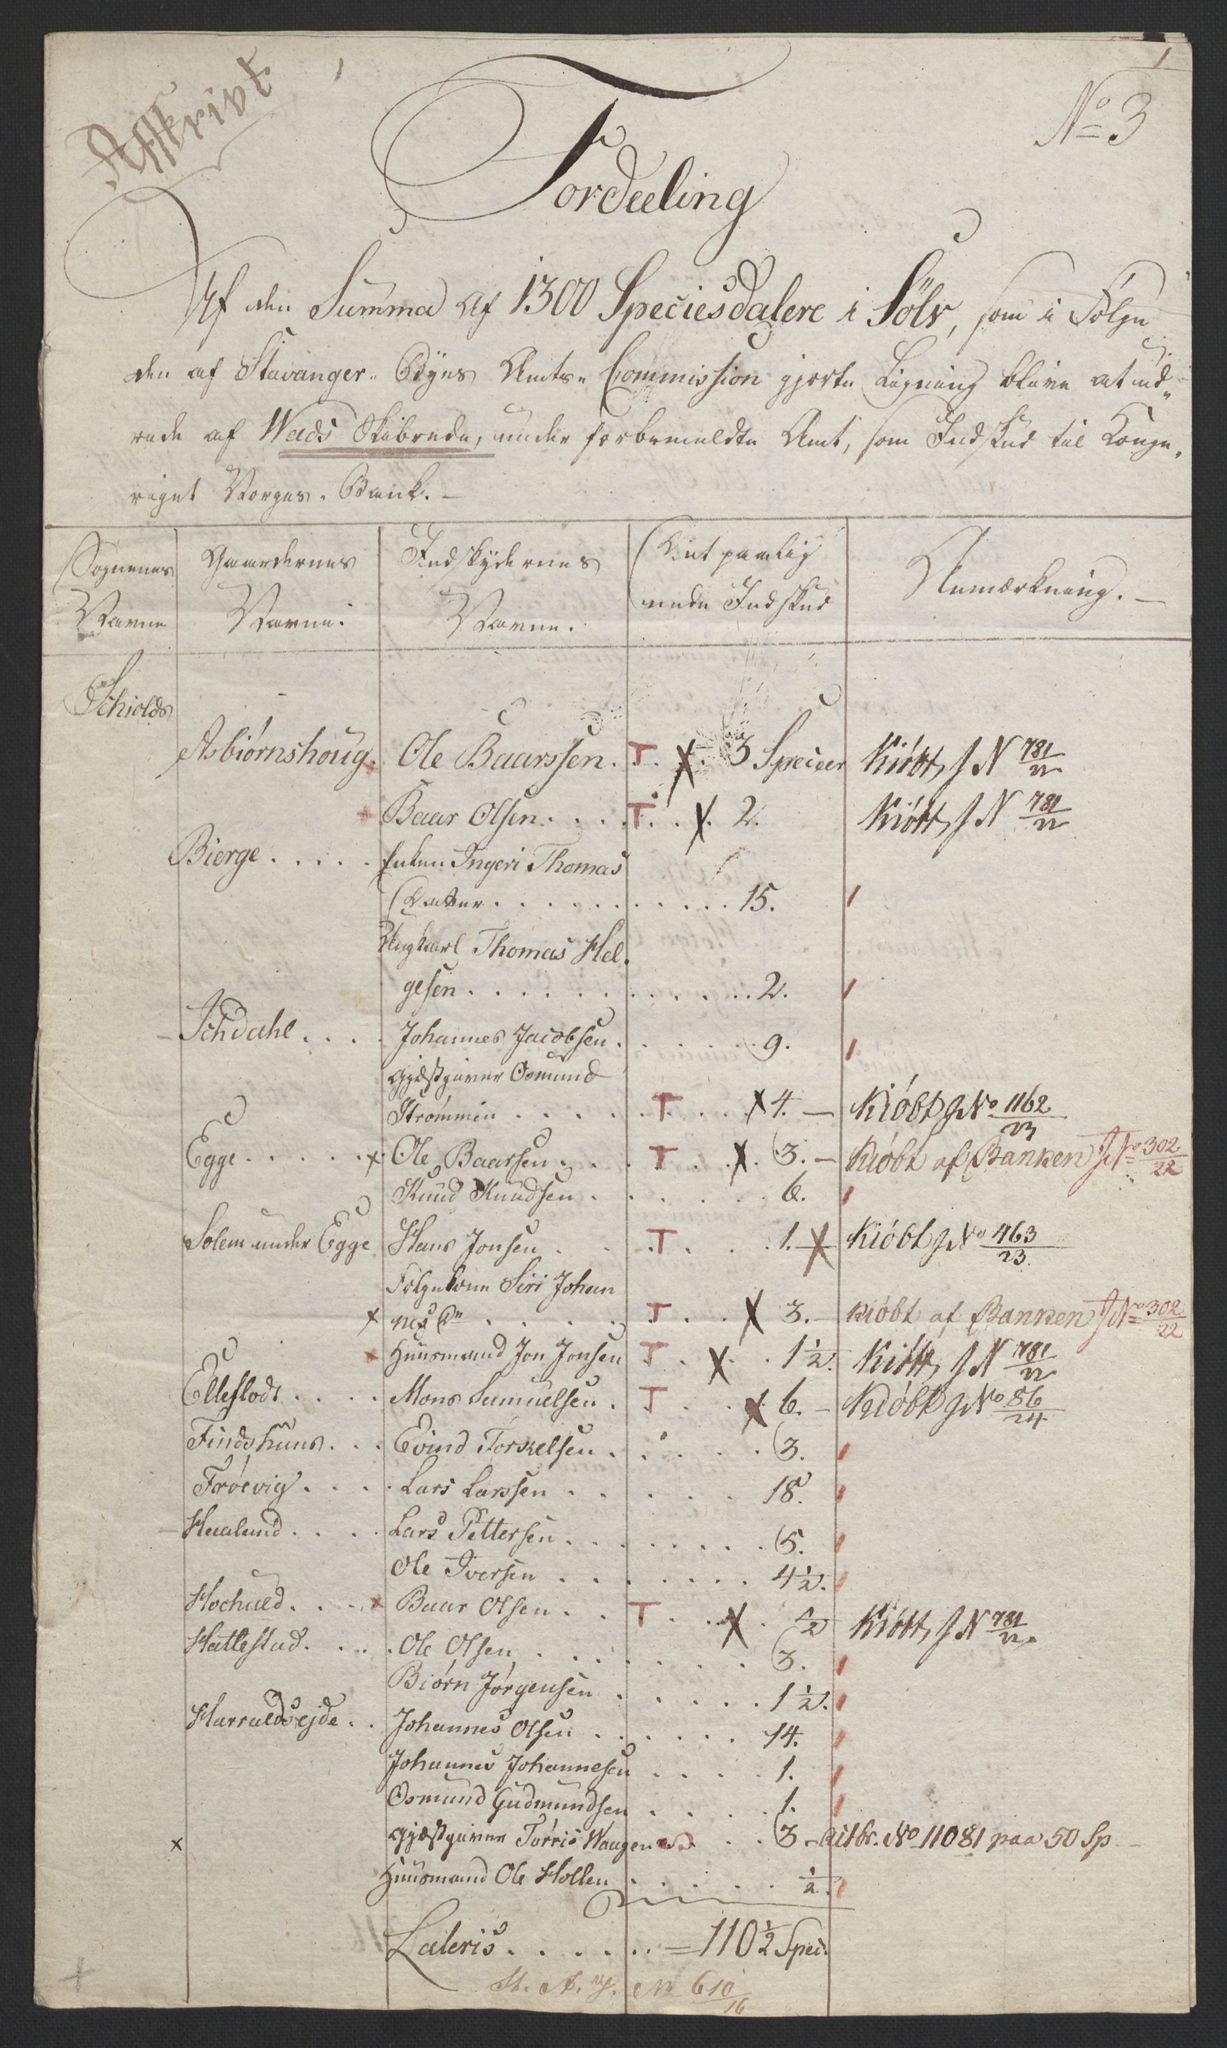 Afskrivt
1
No 3
Fordeeling
Af den Summa af 1300 Speciesdalere i Sølv, som i Følge
den af Stavanger Byes Amts Commission gjorte Ligning bliver at ud=
rede af Wads Skibrede, under forbemeldte Amt, som Indskud til Konge=
riget Norges Bank. —
Sognenes Navne | Gaardernes Navne. | Indskydernes Navne. | Det paalignede Indskud | Anmærkning. —
Schiolds
Asbiørnshoug. Ole Baarssen. T. X. 3 Specier Kiøbt J N 781/22
Baar Olsen.... T. X. 2. Kiøbt J N 781/22
Bierge..... Enken Ingeri Thomas
Datter........... 15.
Ungkarl Thomas Hel-
gesen............ 2.
Ichdahl.... Johannes Jacobsen....... 9.
Gjæstgiver Osmund
Strømmen..... T... X 4. — Kiøbt J No 1162/23
Egge..... x Ole Baarsen... T.. X. 3. — Kiøbt af Banken J No 302/22
Knud Knudsen...... 6.
Solem under Egge Hans Jonsen... T.... 1. X Kiøbt J No 463/23
Følgekone Siri Johan
x nes Dr...... T... X 3. — Kiøbt af Banken J No 302/22
Huusmand Jon Jonsen T.. X.. 1½. Kiøbt J N 781/22
Elleflodt.... Mons Samuelsen. T... X 6. — Kiøbt J No 86/24
Findshuus... Evind Torkelsen....... 3.
Frøevig.... Lars Larssen...... 18.
Haaland.... Lars Pettersen........ 5.
Ole Iversen........ 4½.
Hochuld... x Baar Olsen... T... X. ½ Kiøbt J N 781/22.
Hattestad.... Ole Olsen........ 3.
Biørn Jørgensen..... 1½.
Harraldsejde.. Johannes Olsen...... 14.
Johannes Johannesen.... 1.
Osmund Gudmundsen.... 1.
x Gjæstgiver Torris Waagen... 3 — No 11081 paa 50 Sp
Huusmand Ole Hollen...... ½.
Lateris...... = 110½ Spec:
No 610/16